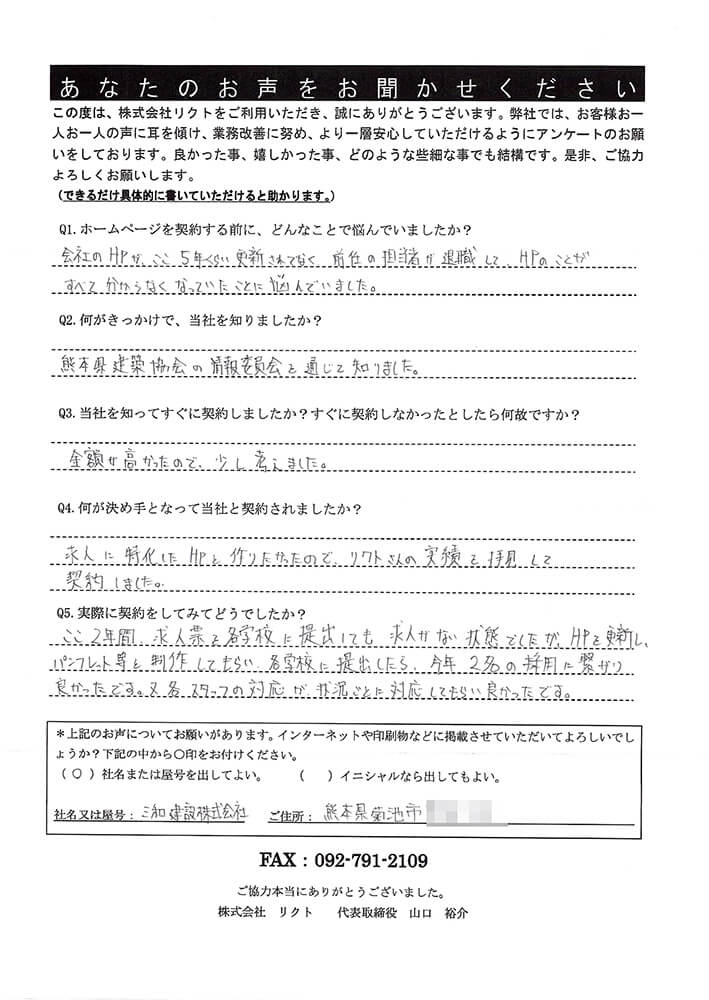 あなたのお声をお聞かせください
この度は、株式会社リクトをご利用いただき、誠にありがとうございます。弊社では、お客様お一
人お一人の声に耳を傾け、業務改善に努め、より一層安心していただけるようにアンケートのお願
いをしております。良かった事、嬉しかった事、どのような些細な事でも結構です。是非、ご協力
よろしくお願いします。
(できるだけ具体的に書いていただけると助かります。)
Q1.ホームページを契約する前に、どんなことで悩んでいましたか？
会社のHPが、ここ5年くらい更新されてなく、前任の担当者が退職して、HPのことが
すべて分からなくなっていたことに悩んでいました。
Q2.何がきっかけで、当社を知りましたか？
熊本県建築協会の情報委員会を通じて知りました。
Q3.当社を知ってすぐに契約しましたか？すぐに契約しなかったとしたら何故ですか？
金額が高かったので、少し考えました。
Q4.何が決め手となって当社と契約されましたか？
求人に特化したHPを作りたかったので、リクトさんの実績を拝見して
契約しました。
Q5.実際に契約をしてみてどうでしたか？
ここ2年間、求人票を各学校に提出しても求人がない状態でしたが、HPを更新し、
パンフレット等を制作してもらい、各学校に提出したら、今年2名の採用に繋がり
良かったです。又各スタッフの対応が状況ごとに対応してもらい良かったです。
＊上記のお声についてお願いがあります。インターネットや印刷物などに掲載させていただいてよろしいでし
ょうか？下記の中から〇印をお付けください。
（〇）社名または屋号を出してよい。　（　）イニシャルなら出してもよい。
社名又は屋号：三和建設株式会社　ご住所：熊本県菊池市
FAX：092-791-2109
ご協力本当にありがとうございました。
株式会社　リクト　代表取締役　山口　裕介